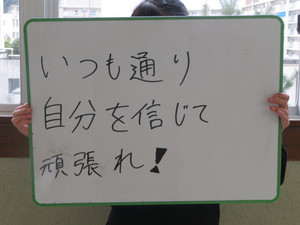 いつも通り
自分を信じて
頑張れ!